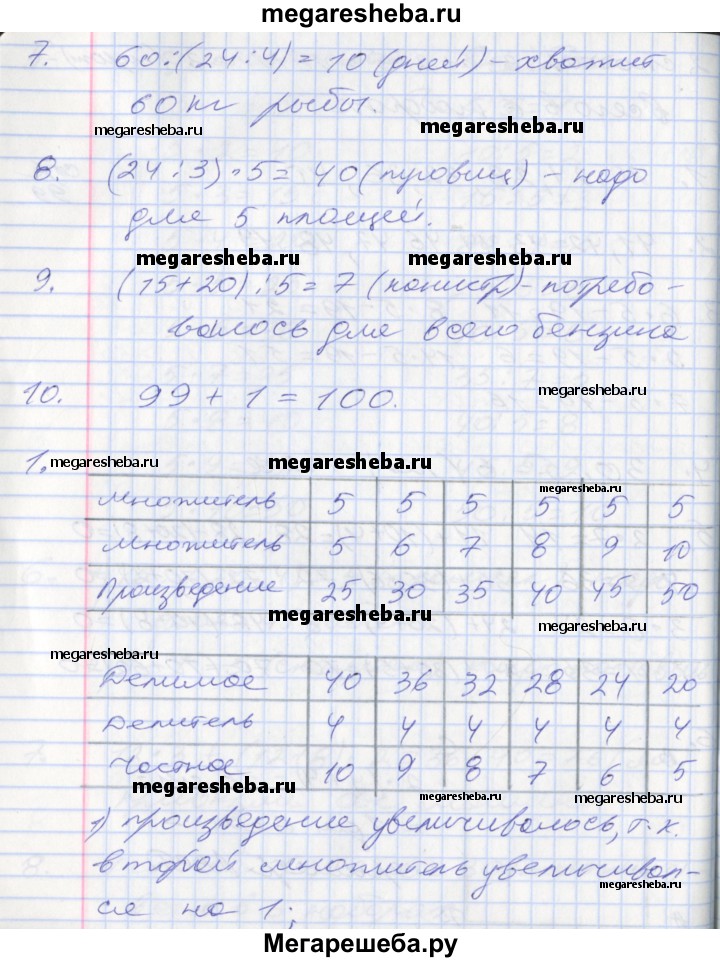 megaresheba.ru
7. 60:(24:4) = 10 (дней) - хватит
60 кг рыбы.
megaresheba.ru megaresheba.ru
8. (24:3)·5 = 40 (пуговиц) - надо
для 5 плащей.
megaresheba.ru megaresheba.ru
9. (15+20):5 = 7 (канистр) - потребо-
валось для всего бензина
megaresheba.ru
10. 99 + 1 = 100.
1. megaresheba.ru megaresheba.ru
megaresheba.ru
Множитель 5 5 5 5 5 5
Множитель 5 6 7 8 9 10
Произведение 25 30 35 40 45 50
megaresheba.ru megaresheba.ru
megaresheba.ru
Делимое 40 36 32 28 24 20
Делитель 4 4 4 4 4 4
Частное 10 9 8 7 6 5
megaresheba.ru megaresheba.ru
1) произведение увеличивалось, т.к.
второй множитель увеличивал-
megaresheba.ru
ся на 1;
Мегарешеба.ру